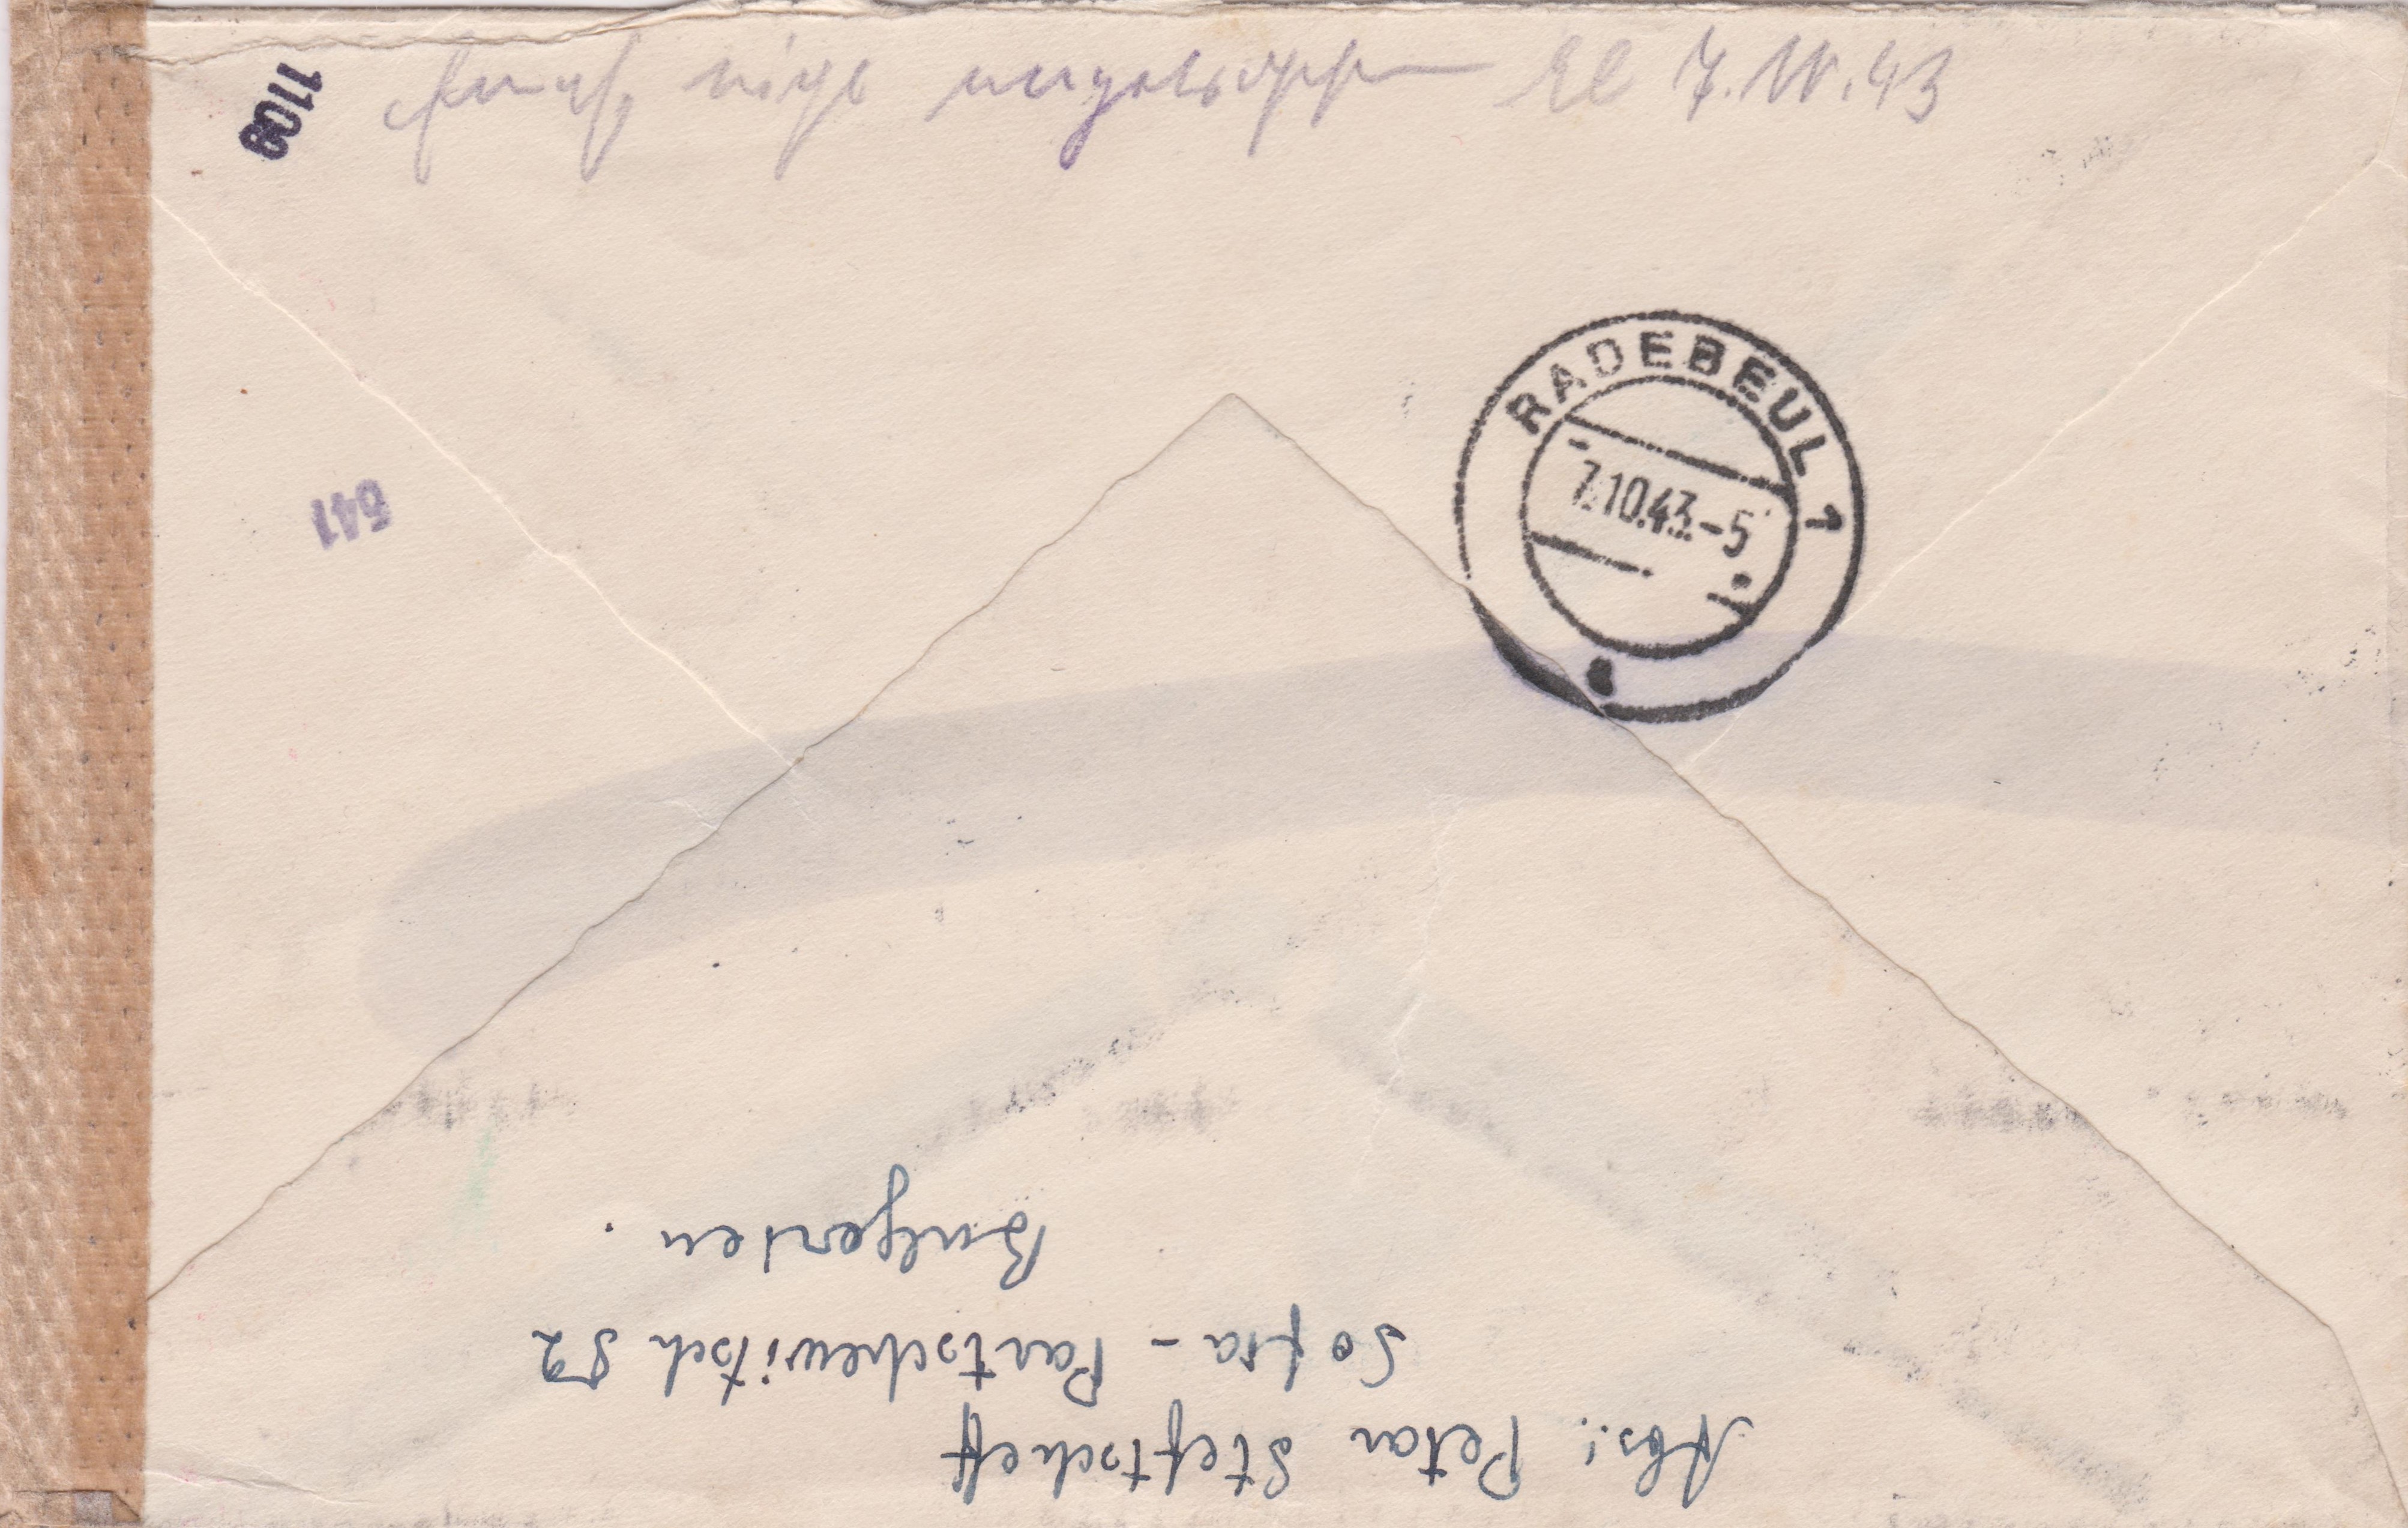 1109
nicht angetroffen El 7.10.43
RADEBEUL 1
7.10.43.-5
e
541
Abs.: Petar Steftscheff
Sofia - Partschewitsch 52
Bulgarien.